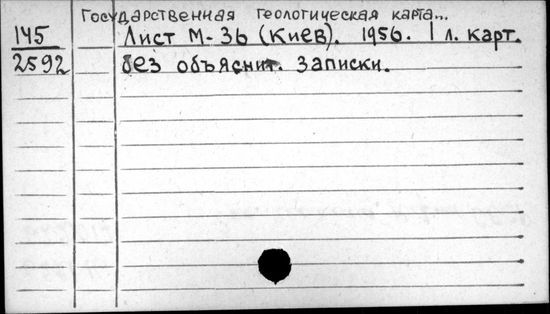 Государственная геологическая карта...
145 Лист М-36 (Киев). 1956. 1 л. карт.
2592 без объяснит. записки.